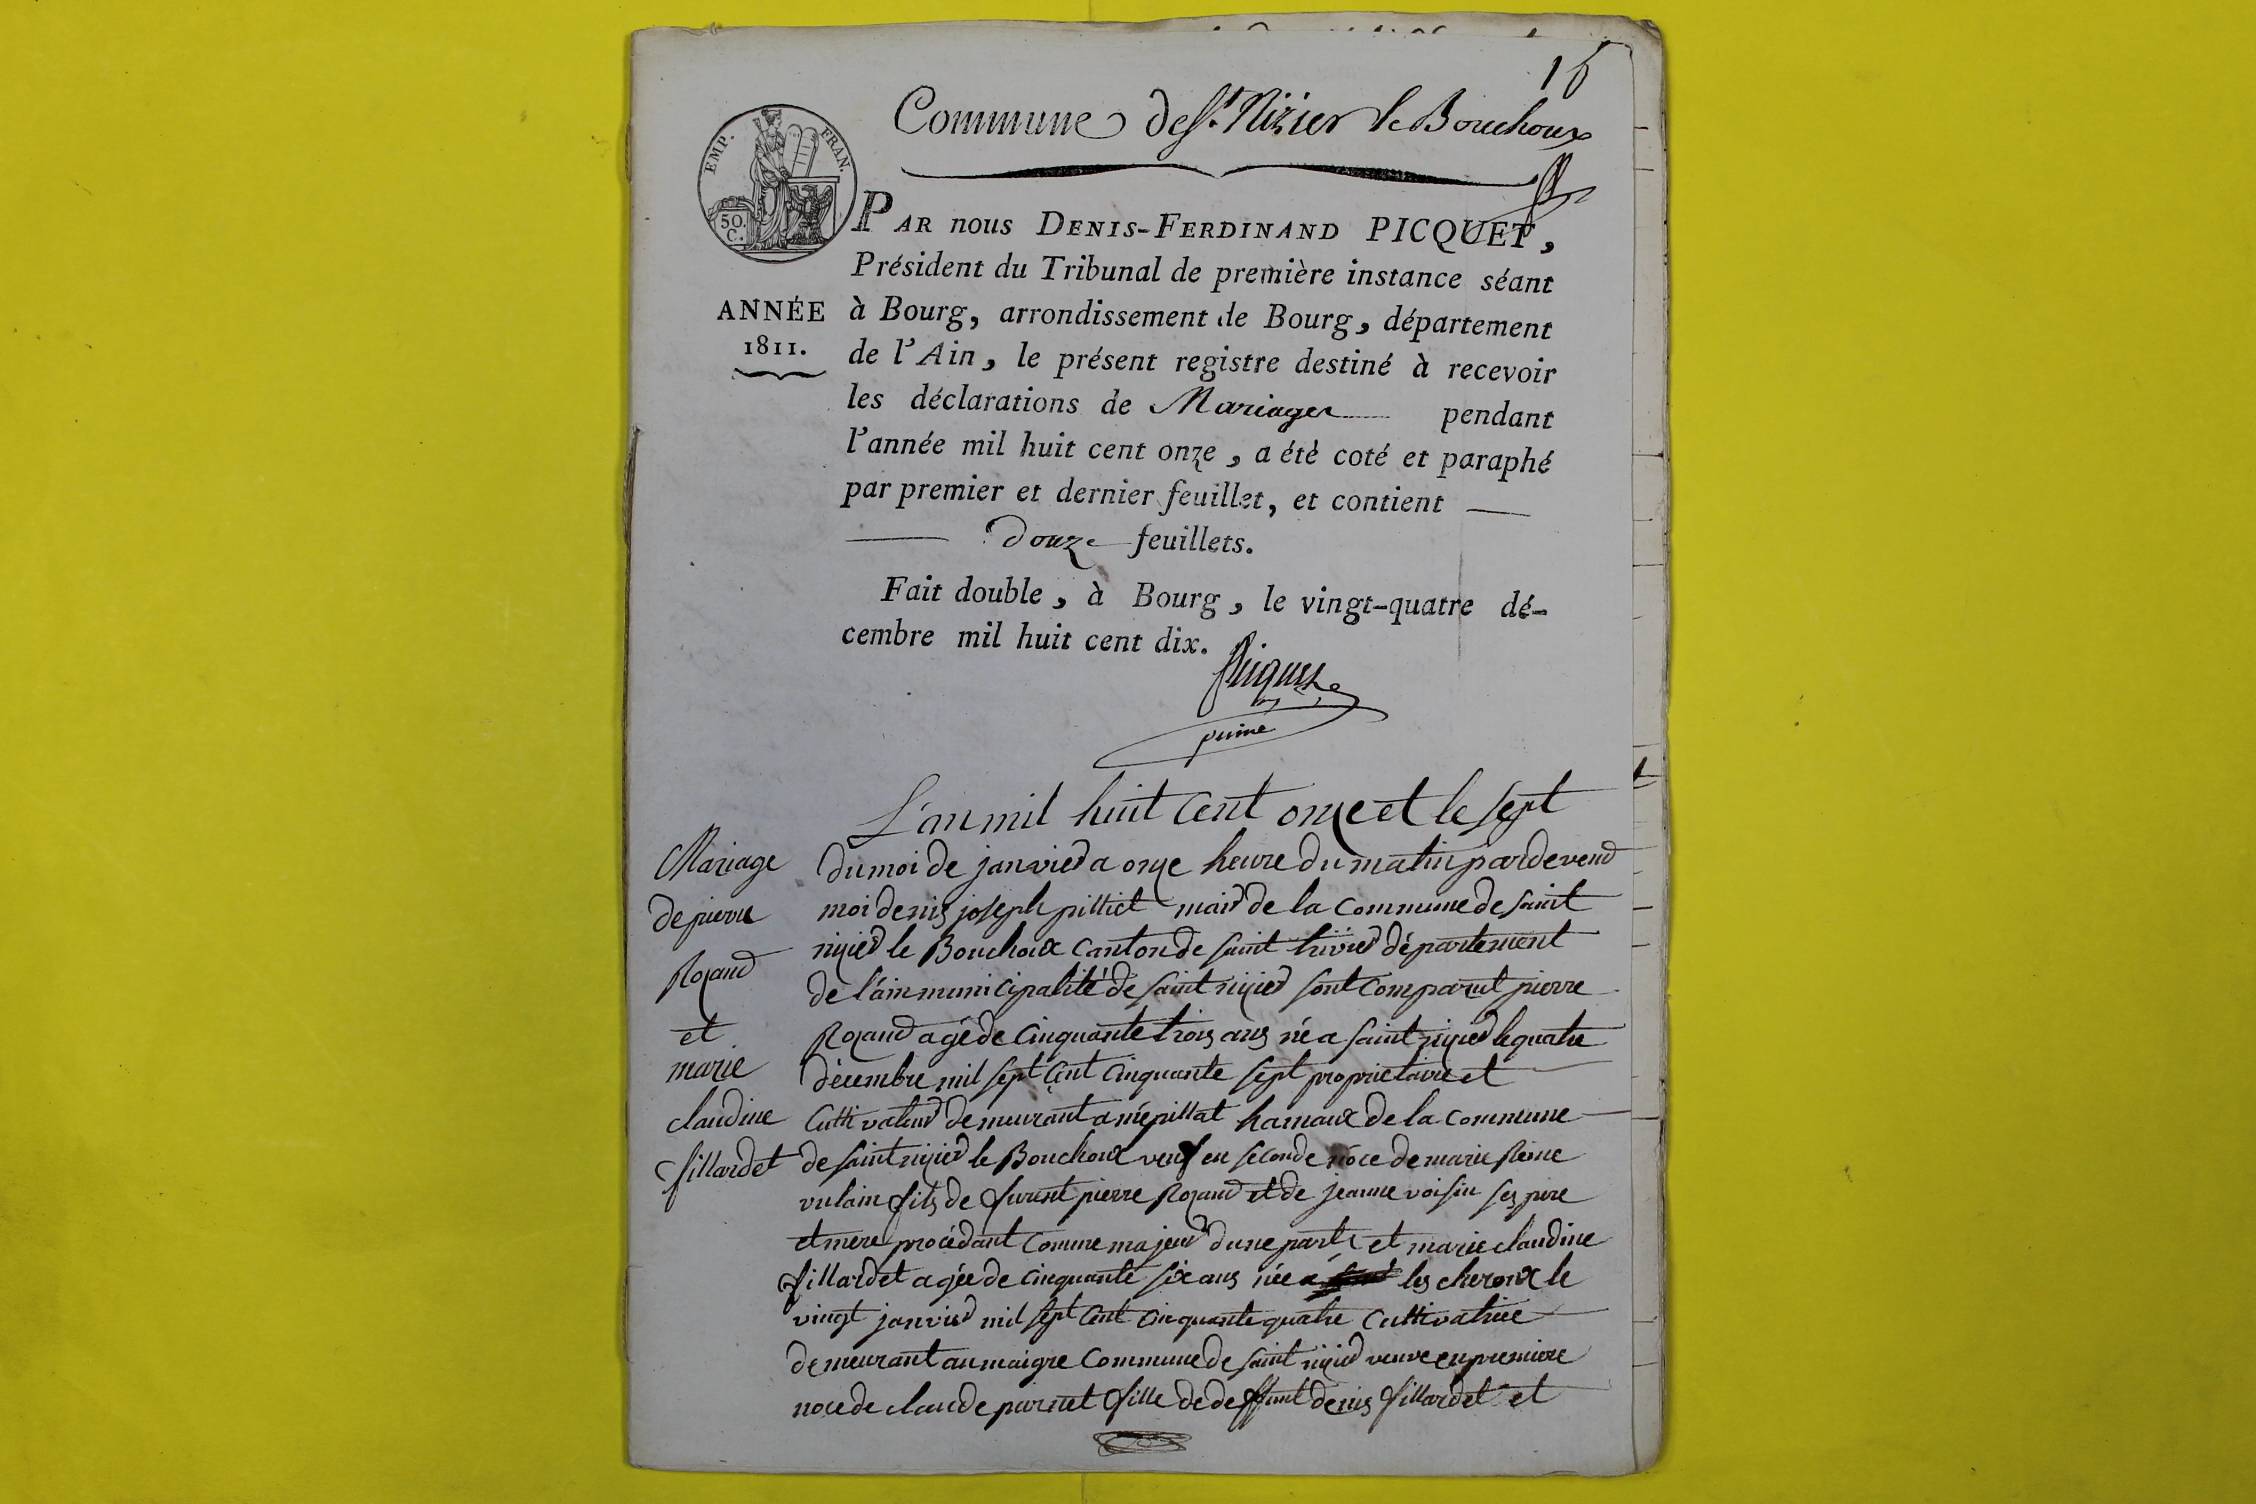 16
Commune de St. Nizier le Bouchoux
EMP. FRAN.
50.
C.
PAR nous DENIS-FERDINAND PICQUET,
Président du Tribunal de première instance séant
ANNÉE
1811.
à Bourg, arrondissement de Bourg, département
de l'Ain, le présent registre destiné à recevoir
les déclarations de Mariages pendant
l'année mil huit cent onze, a étè coté et paraphé
par premier et dernier feuillet, et contient
douze feuillets.
Fait double, à Bourg, le vingt-quatre dé-
cembre mil huit cent dix.
Picquet
Mariage
de pierre
Rozand
et
marie
claudine
fillardet
L'an mil huit cent onze et le sept
du moi de janvier a onze heure du matin pardevend
moi denis joseph pilliet mair de la commune de saint
nizier le Bouchoux canton de saint trivier département
de l'ain municipalité de saint nizier sont comparut pierre
Rozand agé de cinquante trois ans né a saint nizier le quatre
décembre mil sept cent cinquante sept proprietaire et
cultivateur demeurant a mépillat hamaux de la commune
de saint nizier le Bouchoux veuf en seconde nôce de marie Reine
vulain fils de furent pierre Rozand et de jeanne voisin ses pere
et mere procédant comme majeur d'une part et marie claudine
fillardet agée de cinquante six ans née a les cheroux le
vingt janvier mil sept cent cinquante quatre cultivatrice
demeurant au maigre commune de saint nizier veuve en premiere
noce de claude parnet fille de deffunt denis fillardet et